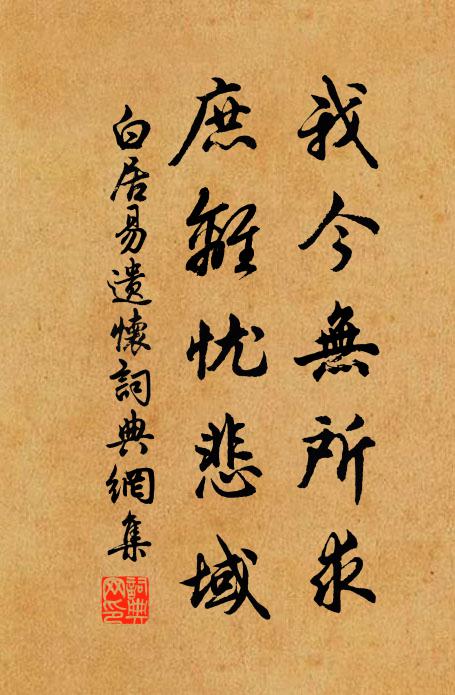 我今無所求
庶離忧悲域
白居易遺懷詞典網集
詞典网印